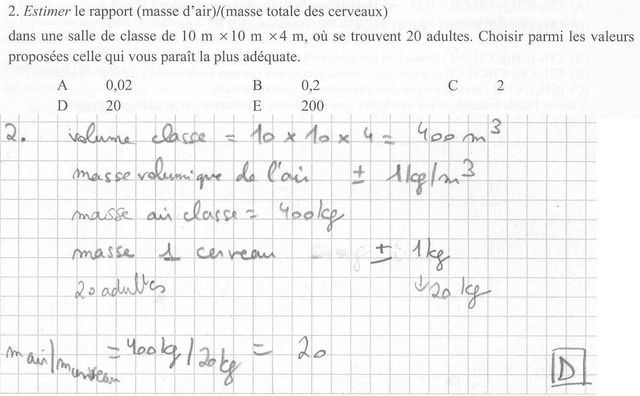 2. Estimer le rapport (masse d'air)/(masse totale des cerveaux)
dans une salle de classe de 10 m ×10 m ×4 m, où se trouvent 20 adultes. Choisir parmi les valeurs
proposées celle qui vous paraît la plus adéquate.
A 0,02 B 0,2 C 2
D 20 E 200
2. volume classe = 10 × 10 × 4 = 400 m³
masse volumique de l'air ± 1kg/m³
masse air classe = 400kg
masse 1 cerveau ± 1kg
20 adultes ↓ 20 kg
m air/m cerveau = 400kg/20kg = 20
D